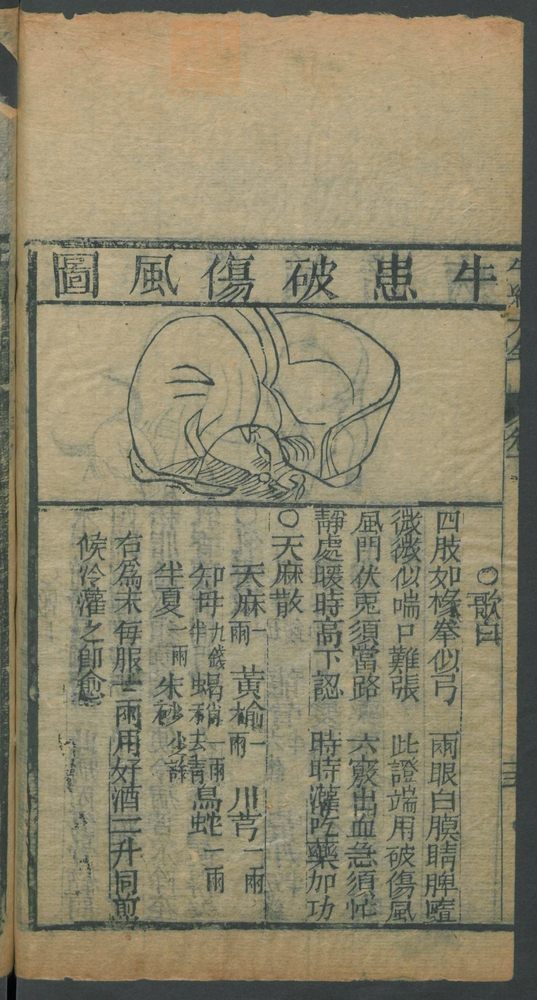 牛患破傷風圖
○歌曰
四肢如椽拳似弓 兩眼白膜睛脾
微微似喘口難張 此證端用破傷風
風門伏兎須當路 六竅出血急須忙
靜處暖時高下認 時時灌吃藥加功
○天麻散
天麻一兩 黃榆一兩 川芎一兩
知母九錢 蝎梢一兩
蟬去 烏蛇一兩
半夏一兩 朱砂少許
右為末每服二兩用好酒二升同煎
候冷灌之即愈